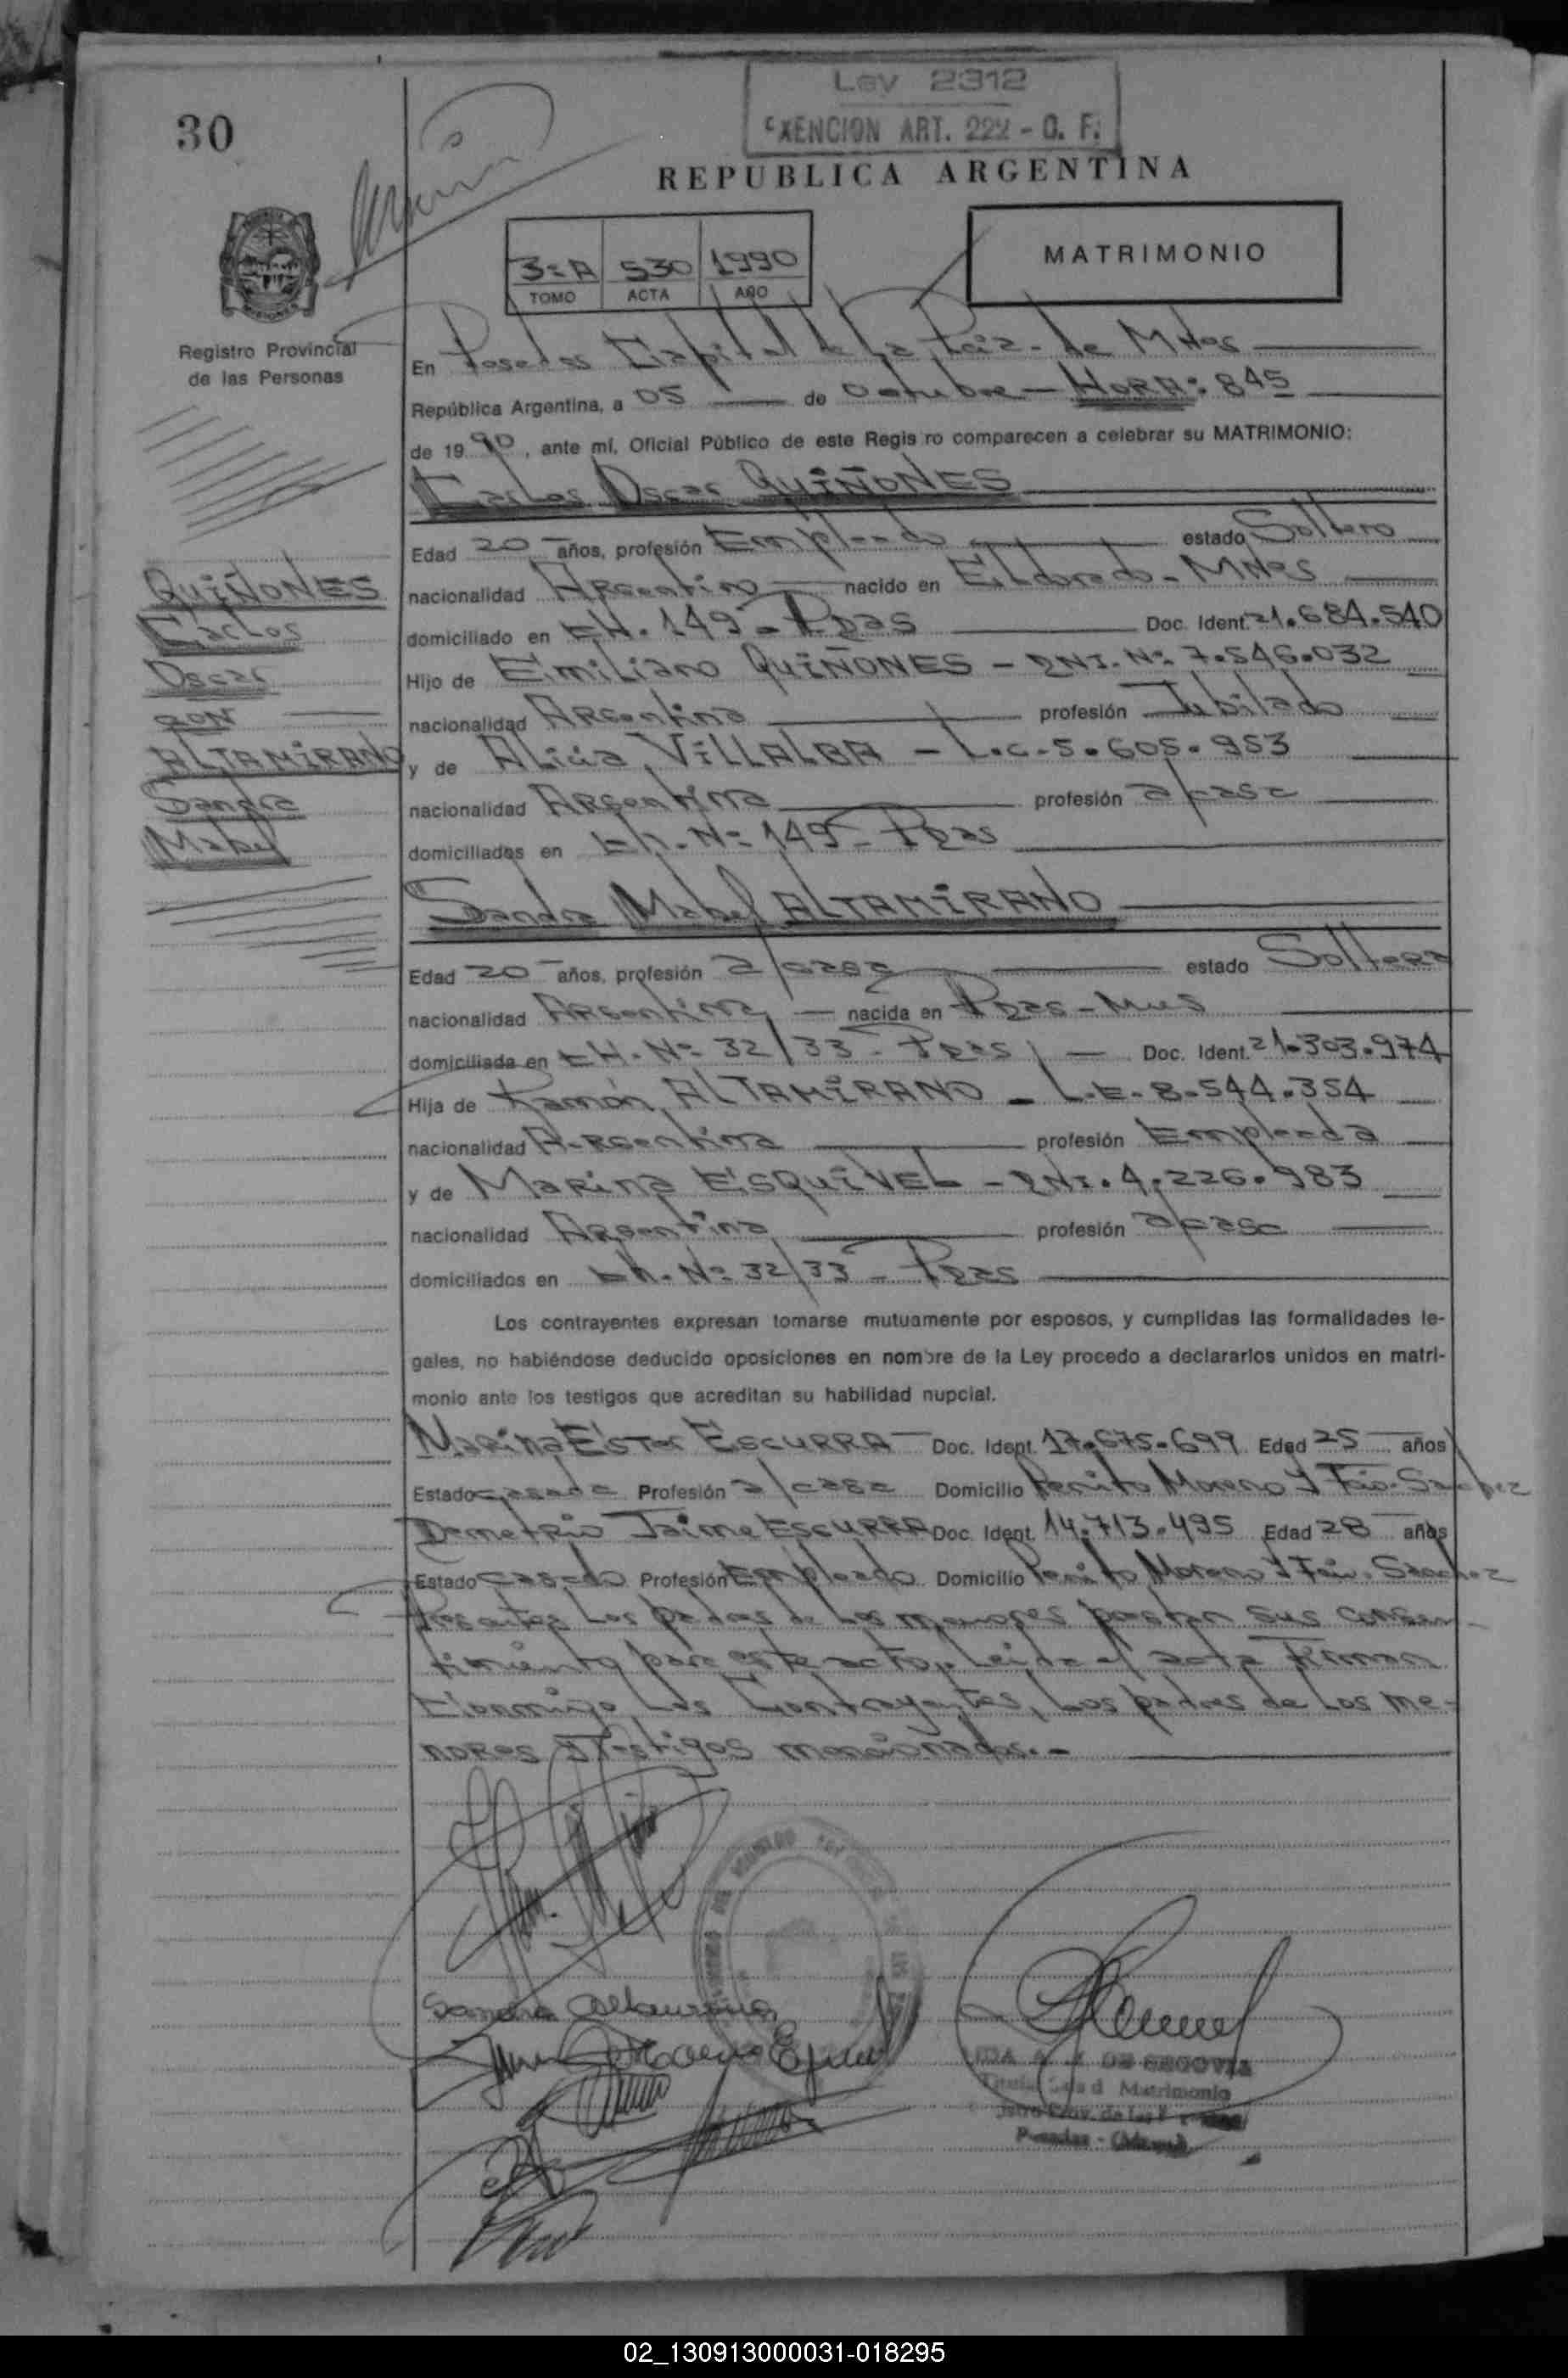 Ley 2312
EXENCION ART. 222 - C. F.
30
REPUBLICA ARGENTINA
3º A 530 1990
TOMO ACTA AÑO
MATRIMONIO
Registro Provincial
de las Personas
En Posadas Capital de la Pcia. de Mnes
República Argentina, a 05 de Octubre - HORA: 845
de 1990, ante mí, Oficial Público de este Registro comparecen a celebrar su MATRIMONIO:
Carlos Oscar QUIÑONES
Edad 20 años, profesión Empleado estado Soltero
nacionalidad Argentino nacido en Eldorado - Mnes
domiciliado en CH. 149 - Pdas Doc. Ident. 21.684.540
Hijo de Emiliano QUIÑONES - DNI. Nº 7.546.032
nacionalidad Argentina profesión Jubilado
y de Alicia VILLALBA - L.C. 5.605.953
nacionalidad Argentina profesión a/casa
domiciliados en Ch. Nº 149 - Pdas
QUIÑONES
Carlos
Oscar
CON
ALTAMIRANO
Sandra
Mabel
Sandra Mabel ALTAMIRANO
Edad 20 años, profesión a/casa estado Soltera
nacionalidad Argentina nacida en Pdas - Mnes
domiciliada en CH. Nº 32/33 - Pdas Doc. Ident. 21.303.974
Hija de Ramón ALTAMIRANO - L.E. 8.544.354
nacionalidad Argentina profesión Empleada
y de Marina ESQUIVEL - DNI. 4.226.983
nacionalidad Argentina profesión a/casa
domiciliados en Ch. Nº 32/33 - Pdas
Los contrayentes expresan tomarse mutuamente por esposos, y cumplidas las formalidades le-
gales, no habiéndose deducido oposiciones en nombre de la Ley procedo a declararlos unidos en matri-
monio ante los testigos que acreditan su habilidad nupcial.
Marina Ester ESCURRA Doc. Ident. 17.675.699 Edad 25 años
Estado casada Profesión a/casa Domicilio Perito Moreno y Fco. Sanchez
Demetrio Jaime ESCURRA Doc. Ident. 14.713.495 Edad 28 años
Estado casado Profesión Empleado Domicilio Perito Moreno y Fco. Sanchez
Presentes los padres de los menores prestan sus consen-
timiento para este acto, Leida el acta Firman
Conmigo, Los Contrayentes, Los padres de los me-
nores y Testigos mencionados.-
Sandra Altamirano
DE SEGOVIA
Matrimonio
Prov. de las
Posadas -
02_130913000031-018295